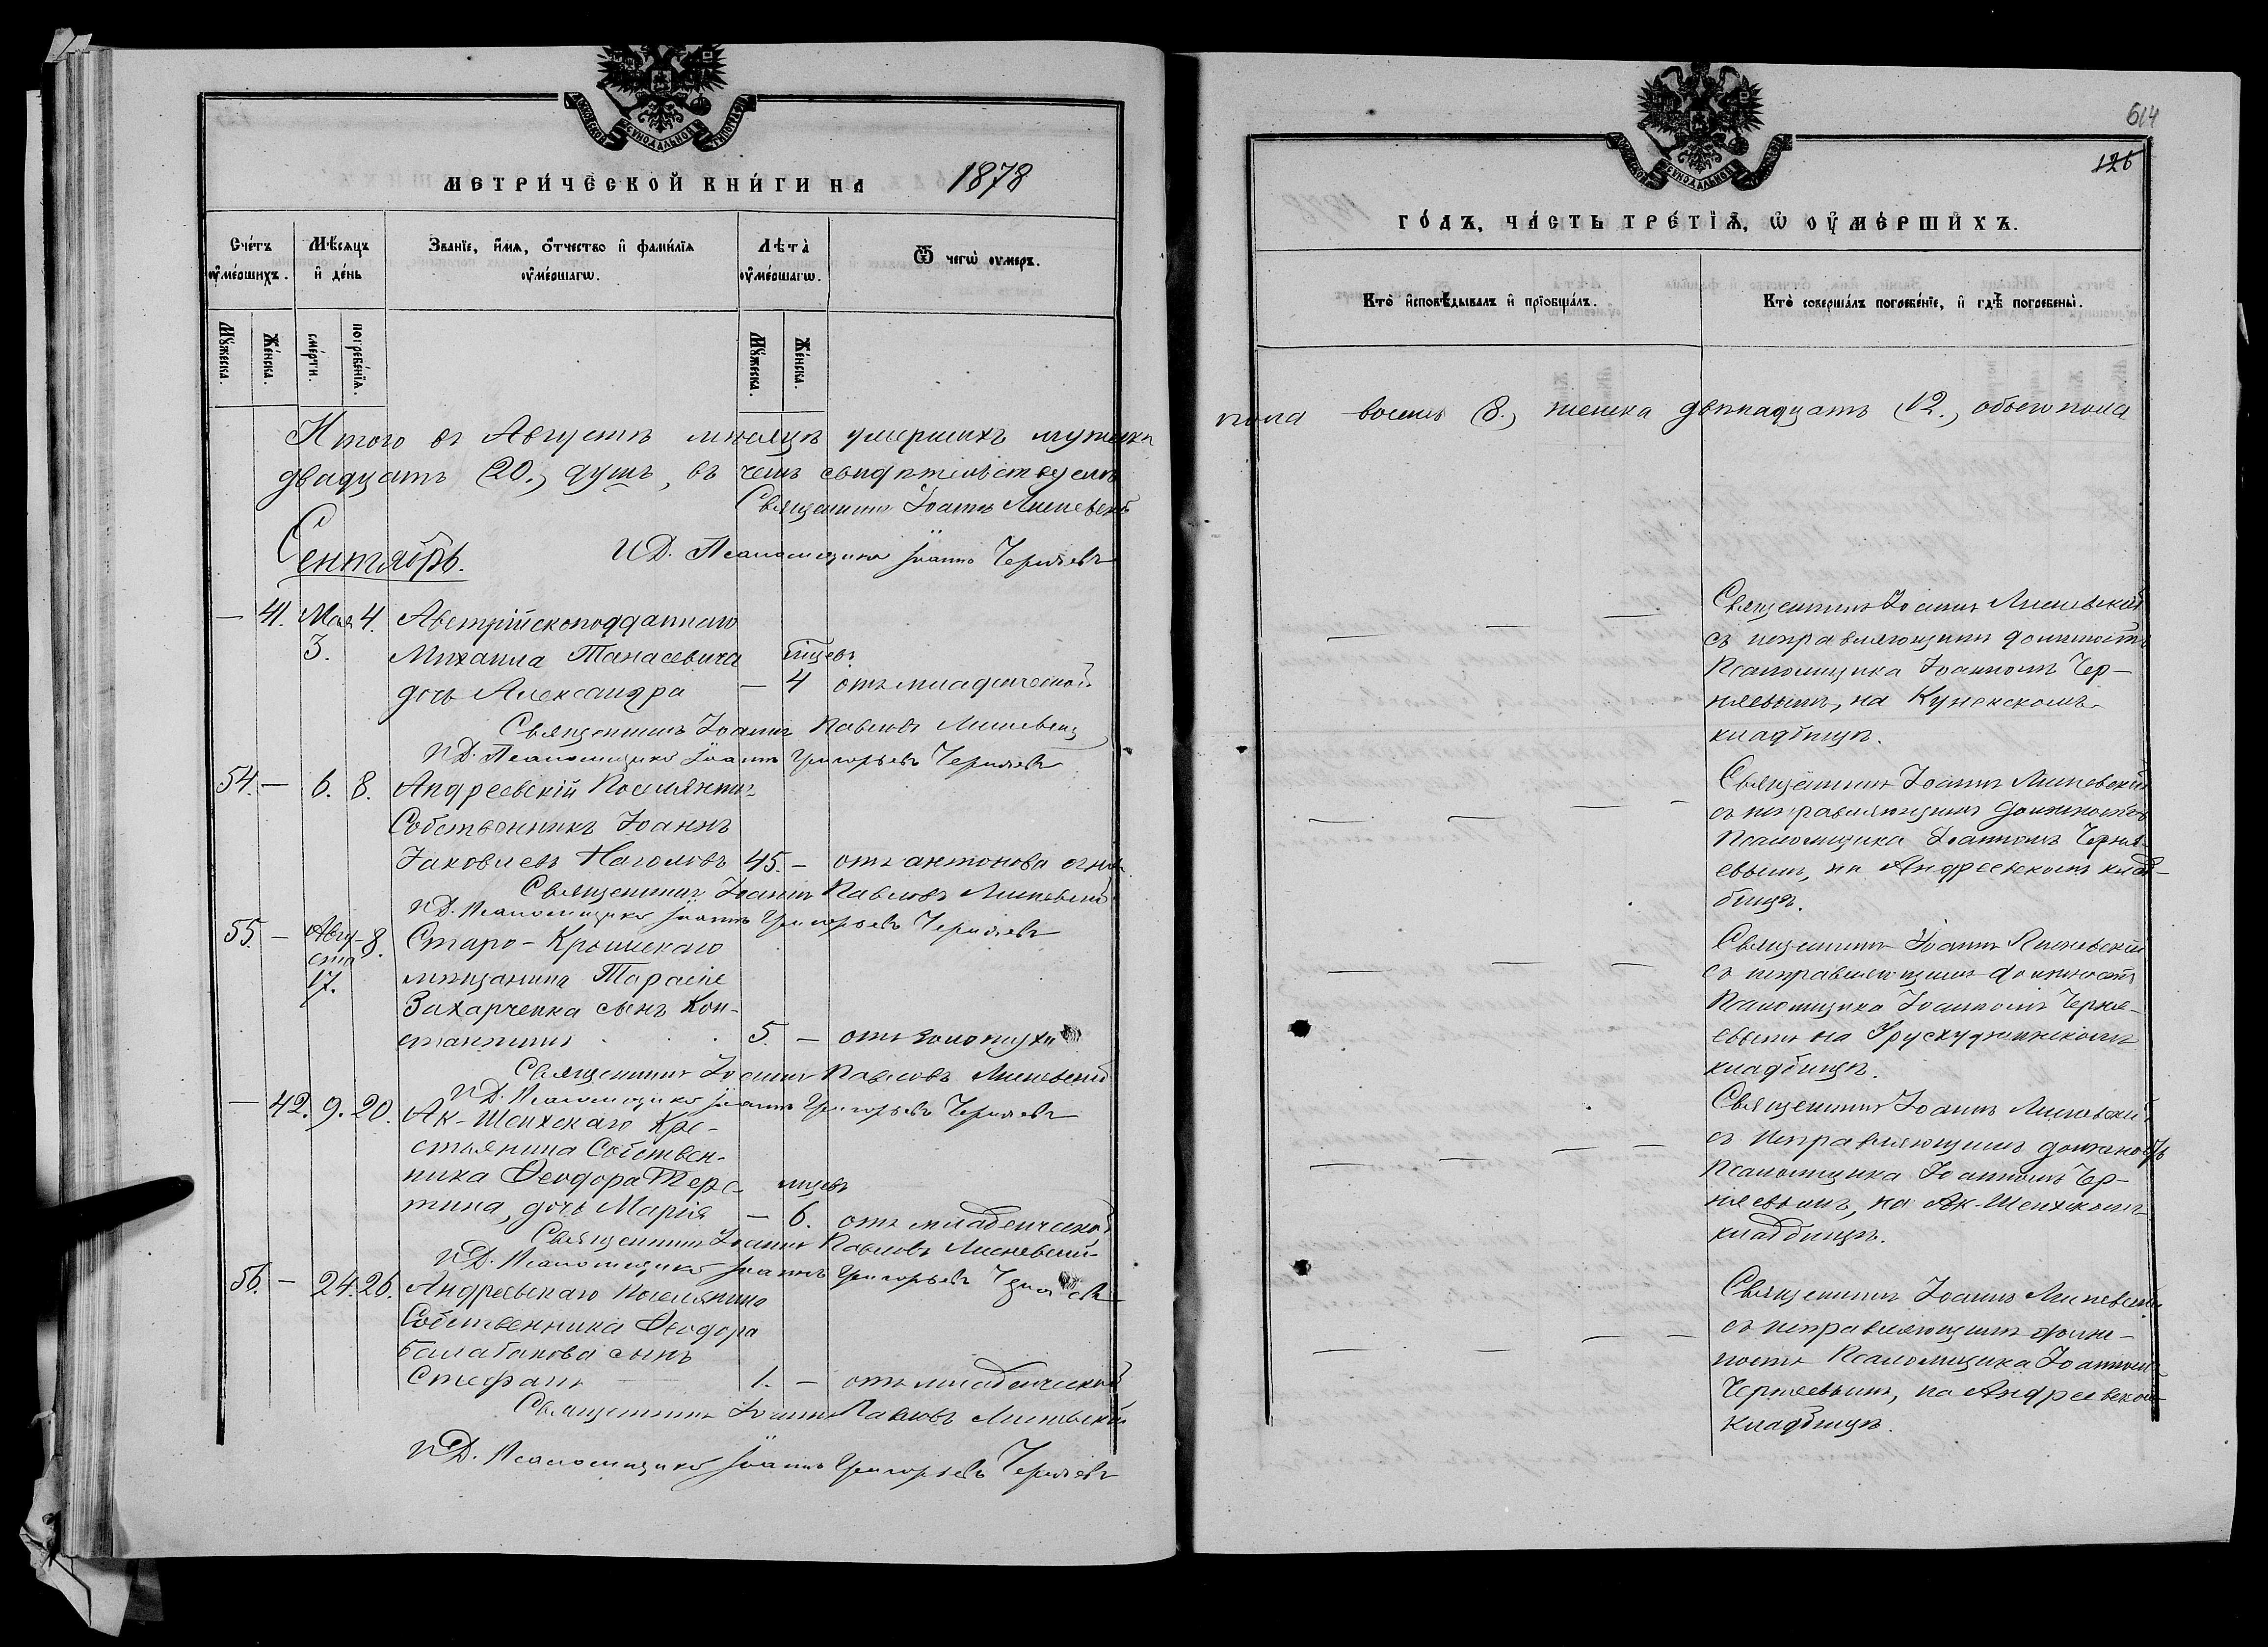 МЕТРИ́ЧЕСКОЙ КНИ́ГИ НА 1878
Сче́тъ ᲂу҆ме́ршихъ.
Мѣ́сяцъ и҆ де́нь
Зва́нїе, и҆́мя, ѻ҆́тчество и҆ фами́лїя ᲂу҆ме́ршагѡ.
Лѣта̀ ᲂу҆ме́ршагѡ.
Ѿ чегѡ̀ ᲂу́меръ.
Мꙋ́жеска.
Же́нска.
сме́рти.
погребе́нїя.
Мꙋ́жеска.
Же́нска.
Итого въ Августѣ мѣсяцѣ умершихъ мужеска
двадцать (20.) душъ, въ чемъ свидѣтельствуемъ
Священникъ Іоаннъ
Сентябрь.
И.Д. Псаломщика Іоаннъ Черняевъ
— 41. Мая 4. Австрійскоподданнаго
3. Михаила Танасевича
дочь Александра — 4 отъ младенческой
Священникъ Іоаннъ Павловъ
И.Д. Псаломщика Іоаннъ Григорьевъ Черняевъ
54. — 6. 8. Андреевскій Поселянинъ
Собственникъ Іоаннъ
Іаковлевъ Наголовъ 45. — отъ антонова огня
Священникъ Іоаннъ Павловъ
И.Д. Псаломщика Іоаннъ Григорьевъ Черняевъ
55. — Авгу- 8. Старо-Крымскаго
ста мѣщанина Тарасіе
17. Захарченка сынъ Кон-
стантинъ 5. — отъ золотухи
Священникъ Іоаннъ Павловъ
И.Д. Псаломщика Іоаннъ Григорьевъ Черняевъ
— 42. 9. 20. Ак-Шеихскаго Кре-
стьянина Собствен-
ника Ѳеодора Тере-
тина, дочь Марія — 6. отъ младенческой
Священникъ Іоаннъ Павловъ
И.Д. Псаломщика Іоаннъ Григорьевъ
56. — 24. 26. Андреевскаго поселянина
Собственника Ѳеодора
Балабанова сынъ
Стефанъ 1. — отъ младенческой
Священникъ Іоаннъ Павловъ
И.Д. Псаломщика Іоаннъ Григорьевъ Черняевъ
614
126
ГО́ДЪ, ЧА́СТЬ ТРЕ́ТЇѦ, Ѡ ОУ҆МЕ́РШИХЪ.
Кто̀ и҆сповѣ́дывалъ и҆ прїобща́лъ.
Кто̀ соверша́лъ погребе́нїе, и҆ гдѣ̀ погребены̀.
пола восемь (8.) женска двѣнадцать (12.) обоего пола
Священникъ Іоаннъ
съ исправляющимъ должность
Псаломщика Іоанномъ Чер-
няевымъ, на
кладбищѣ.
Священникъ Іоаннъ
съ исправляющимъ должность
Псаломщика Іоанномъ Черня-
евымъ, на Андреевскомъ клад-
бищѣ.
Священникъ Іоаннъ
съ исправляющимъ должность
Псаломщика Іоанномъ Черня-
евымъ на
кладбищѣ.
Священникъ Іоаннъ
съ исправляющимъ должность
Псаломщика Іоанномъ Чер-
няевымъ, на Ак-Шеихскомъ
кладбищѣ.
Священникъ Іоаннъ
съ исправляющимъ долж-
ность Псаломщика Іоанномъ
Черняевымъ, на Андреевскомъ
кладбищѣ.